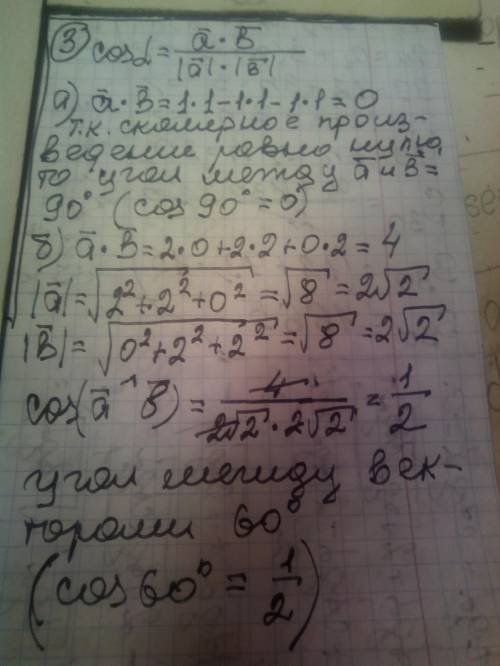 ③ cos α = a̅ · b̅ / |a̅| · |b̅|
а) a̅ · b̅ = 1·1 - 1·1 - 1·1 = 0
т.к. скалярное произ-
ведение равно нулю,
то угол между a̅ и b̅ =
90° (cos 90° = 0)
б) a̅ · b̅ = 2·0 + 2·2 + 0·2 = 4
|a̅| = √(2² + 2² + 0²) = √8 = 2√2
|b̅| = √(0² + 2² + 2²) = √8 = 2√2
cos(a̅ ^ b̅) = 4 / 2√2 · 2√2 = 1/2
угол между век-
торами 60°
(cos 60° = 1/2)